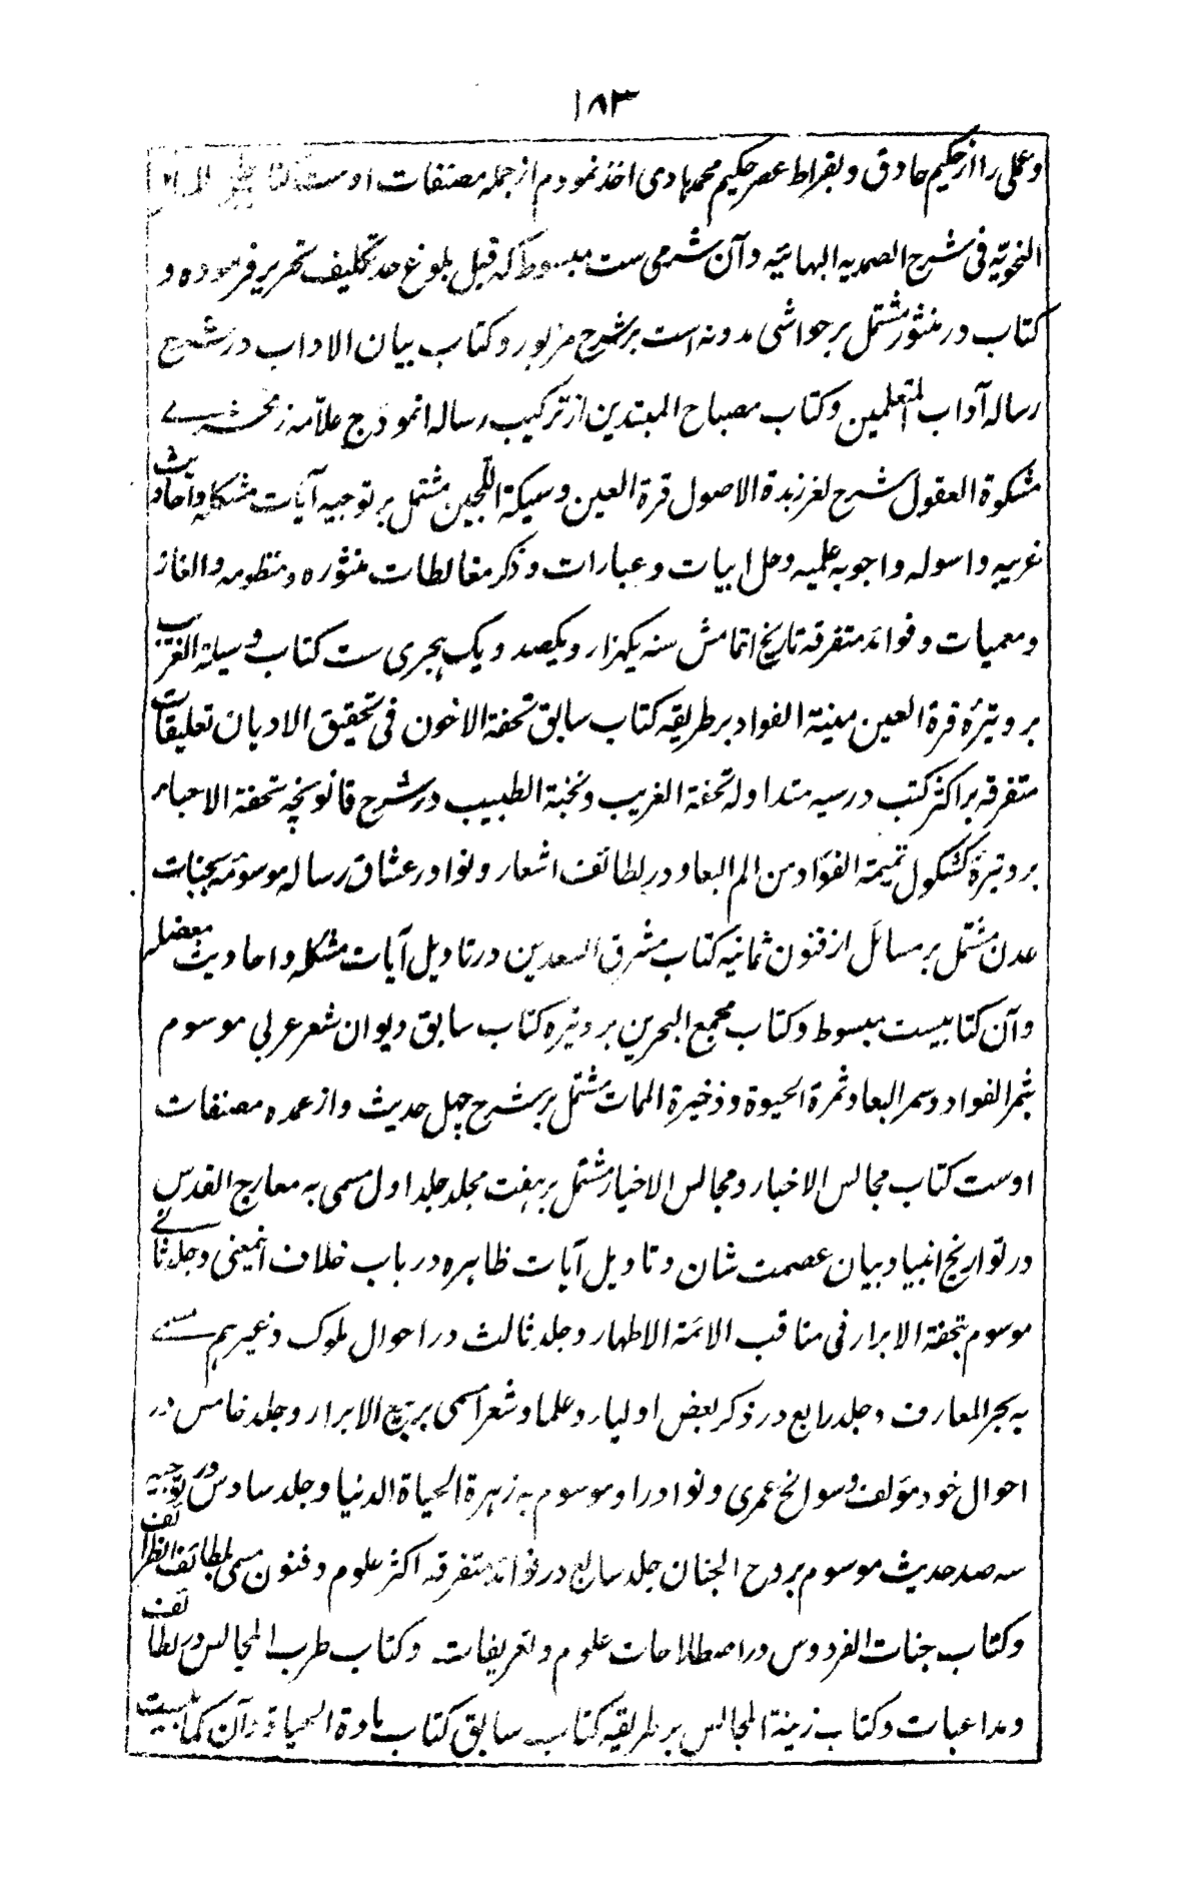 ۱۸۳
وعملی را از حکیم حاذق و بقراط عصر حکیم محمد هادی اخذ نمودم از جمله مصنفات اوست کتاب
النحویّه فی شرح الصمدیه البهائیه و آن شرحی ست مبسوط که قبل بلوغ حد تکلیف تحریر فرموده و
کتاب در منثور مشتمل بر حواشی مدونه است بر شرح مزبور و کتاب بیان الاداب در شرح
رساله آداب المتعلمین و کتاب مصباح المبتدین از ترکیب رساله انموذج علّامه زمخشرے
مشکوة العقول شرح لغز زبدة الاصول قرة العین و سبیکة اللّجین مشتمل بر توجیه آیات مشکله و احادیث
غریبه و اسوله و اجوبه علمیه و حل ابیات و عبارات و ذکر مغالطات منثوره و منظومه و الغاز
و معمیات و فوائد متفرقه تاریخ اتمامش سنه یکهزار و یکصد و یک هجری ست کتاب وسیلة الغریب
بر وتیرۀ قرة العین منیة الفواد بر طریقه کتاب سابق تحفة الاخون فی تحقیق الادیان تعلیقات
متفرقه بر اکثر کتب درسیه متداوله تحفة الغریب و نخبة الطبیب در شرح قانونچه تحفة الاحباء
بر وتیرۀ کشکول تمیمة الفؤاد من الم البعاد در لطائف اشعار و نوادر عشاق رساله موسومه بجنات
عدن مشتمل بر مسائل از فنون ثمانیه کتاب مشرق السعدین در تاویل آیات مشکله و احادیث معضله
و آن کتابیست مبسوط و کتاب مجمع البحرین بر وتیره کتاب سابق دیوان شعر عربی موسوم
بثمر الفواد و سمر البعاد ثمرة الحیوة و ذخیرة الممات مشتمل بر شرح چهل حدیث و از عمده مصنفات
اوست کتاب مجالس الاخبار و مجالس الاخیار مشتمل بر هفت مجلد جلد اول مسمی به معارج القدس
در تواریخ انبیا و بیان عصمت شان و تاویل آیات ظاهره در باب خلاف انمیعنی و جلد ثانے
موسوم بتحفة الابرار فی مناقب الائمة الاطهار و جلد ثالث در احوال ملوک و غیرهم مسمے
به بحر المعارف و جلد رابع در ذکر بعض اولیاء و علما و شعرا مسمی بربیع الابرار و جلد خامس در
احوال خود مؤلف و سوانح عمری و نوادر او موسوم به زهرة الحیاة الدنیا و جلد سادس در توجیه
سه صد حدیث موسوم بروح الجنان جلد سابع در فوائد متفرقه اکثر علوم و فنون مسمی بلطائف الظرائف
و کتاب جنات الفردوس در اصطلاحات علوم و تعریفات و کتاب طرب المجالس در لطائف
و مداعبات و کتاب زینة المجالس بر طریقه کتاب سابق کتاب مادة الحیاة و آن کتابیست